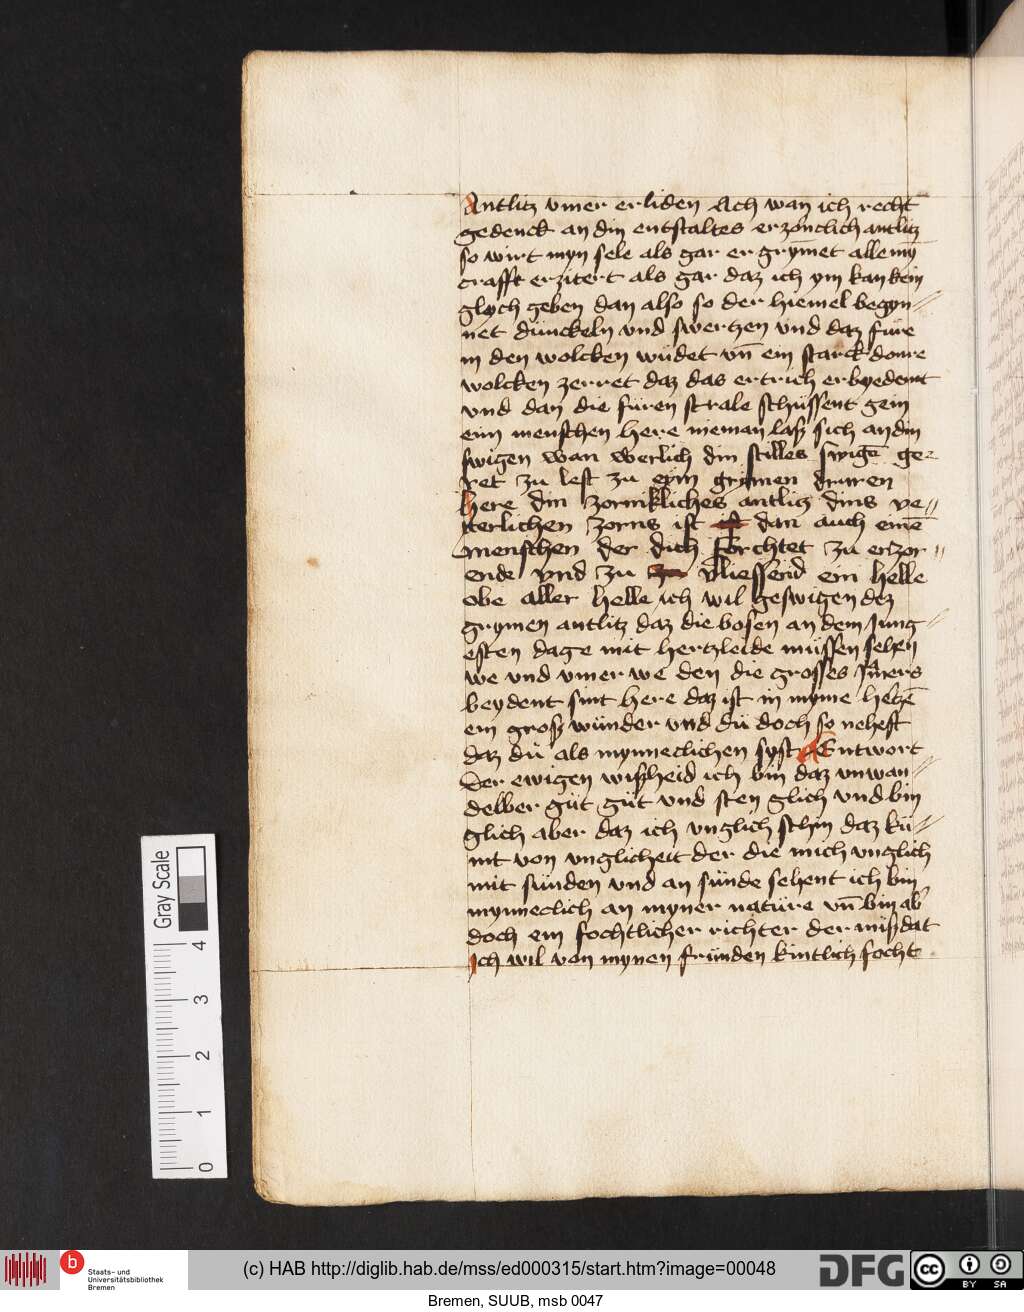 Antlitz vmer erliden Ach wan ich recht
gedenck an din entstaltes erzonclich antlitz
so wirt myn sele als gar ergrymet alle myn̄
crafft erzitert als gar daz ich ym kan kein
glych geben dan also so der hiemel begyn⸗
net dünckeln vnd swertzen vnd daz füre
in den wolcken wüdet vn̄ ein starck donre
wolcken zerret daz das ertrich erbyedemt
vnd dan die füren strale schüssent gein
eim menschen here nieman laß sich an din
swigen wan werlich din stilles swigē ge⸗
ret zu lest zu eym grymen druren
here din zornikliches antlitz dins ve⸗
tterlichen zorns ist dan auch einē
menschen der dich forchtet zu erzor⸗
ende vnd zu vliessend ein helle
obe aller helle ich wil geswigen dez
grymen antlitz daz die bosen an dem Jung⸗
esten dage mit hertzleide müssen sehen
we vnd vmer we den die grosses Jm̄ers
beydent sint here daz ist in myme hetzē
ein groß wünder vnd dü doch so nehest
daz dü als mynneclichen syst AEntwort
Der ewigen wißheid ich bin daz vnwan⸗
delber güt güt vnd sten glich vnd bin
glich aber daz ich vnglich schin daz kü⸗
mt von vnglicheit der die mich vnglich
mit sünden vnd an sünde sehent ich bin
mynneclich an myner natüre vn̄ bin ab'
doch ein fochtlicher richter der mißdat
Ich wil von mynen fründen kintlich focht
Gray Scale
4
3
2
1
0
b
Staats- und
Universitätsbibliothek
Bremen
(c) HAB http://diglib.hab.de/mss/ed000315/start.htm?image=00048
DFG
cc
BY SA
Bremen, SUUB, msb 0047